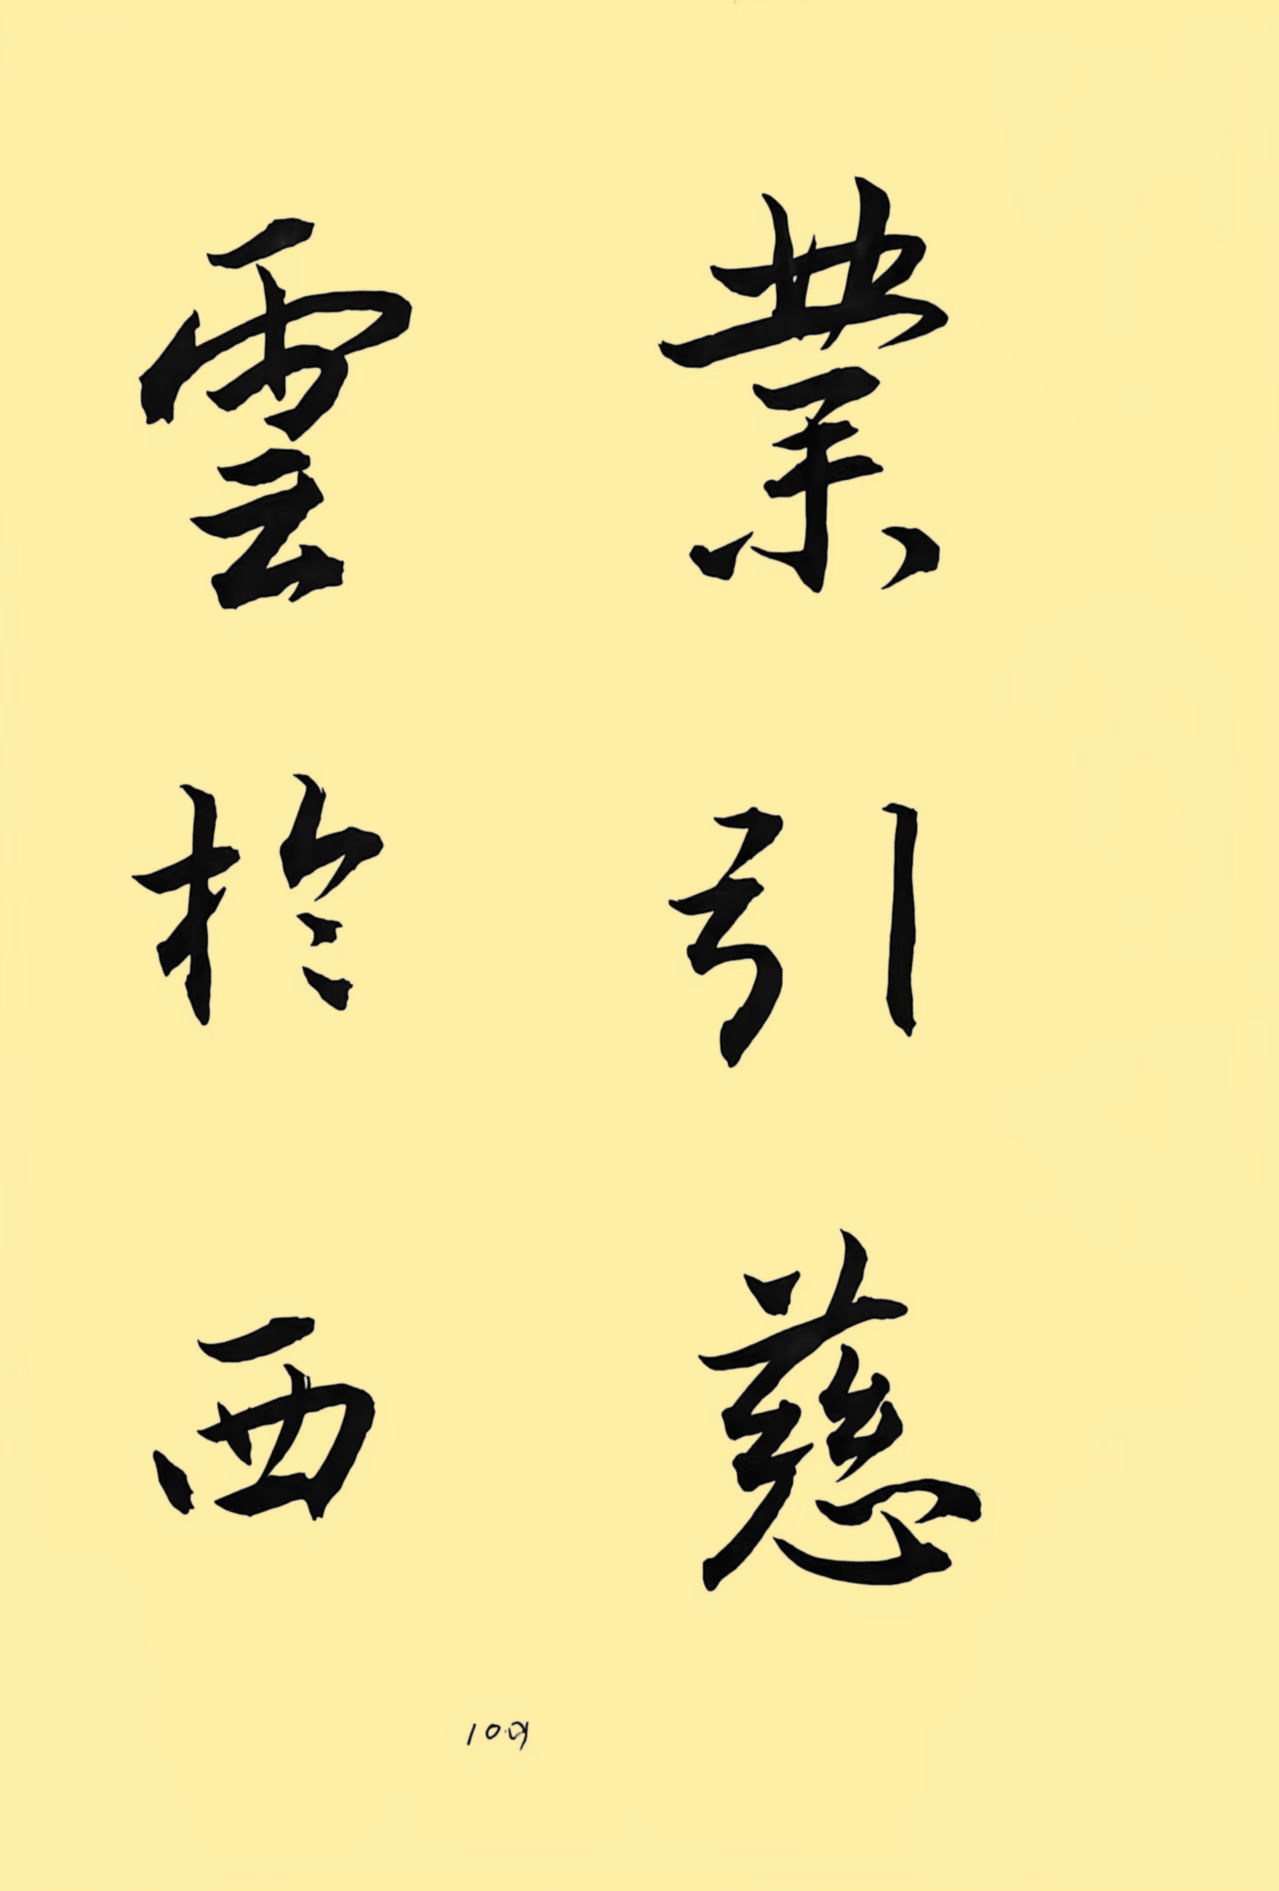 業引慈
雲於西
109